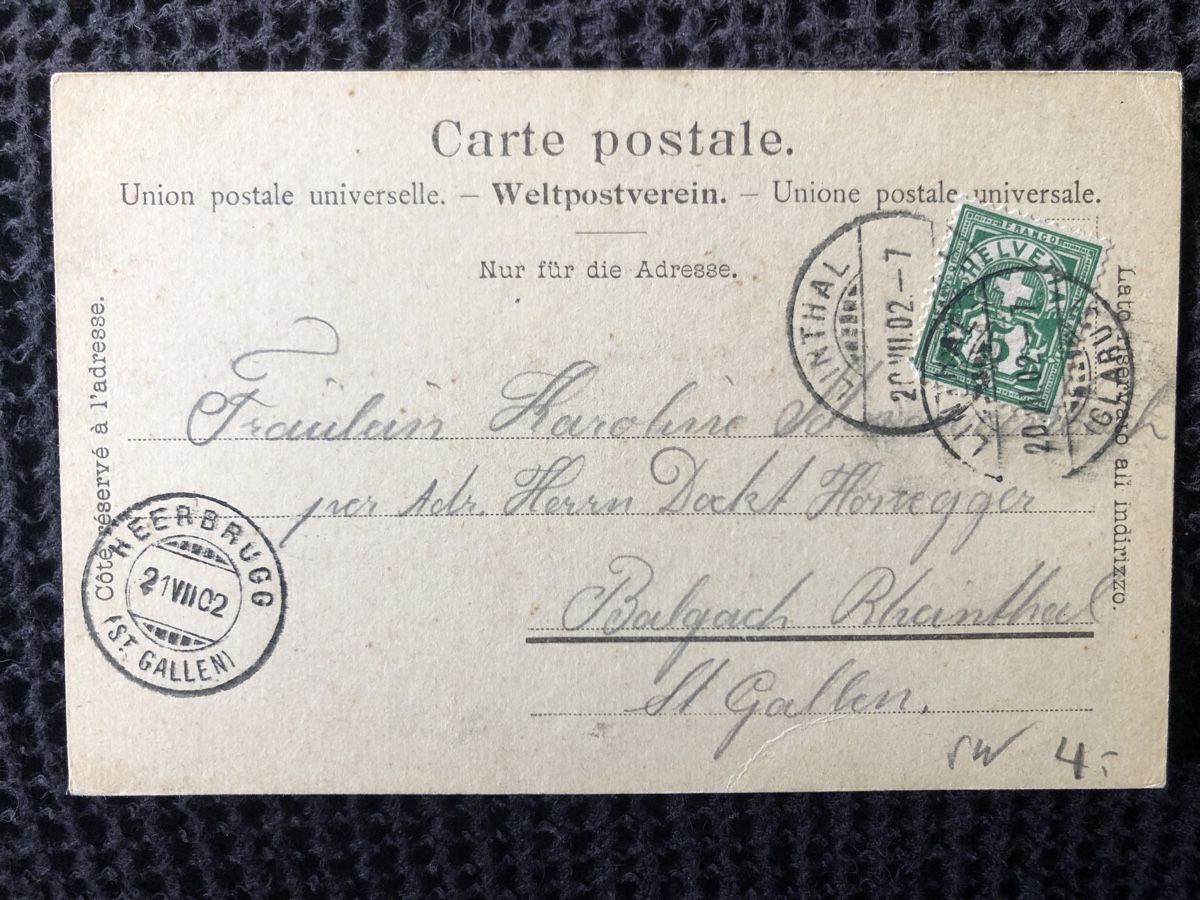 Carte postale.
Union postale universelle. – Weltpostverein. – Unione postale universale.
Nur für die Adresse.
Côté réservé à l'adresse.
Lato riservato all indirizzo.
FRANCO
HELVETIA
5
LINTHAL
20.VII.02.–7
LINTHAL
20 VII 02
(GLARUS)
Fräulein Karoline
per Adr. Herrn Dockt Honegger
Balgach Rheinthal
St Gallen.
HEERBRUGG
21 VII 02
(ST. GALLEN)
SW 4.-